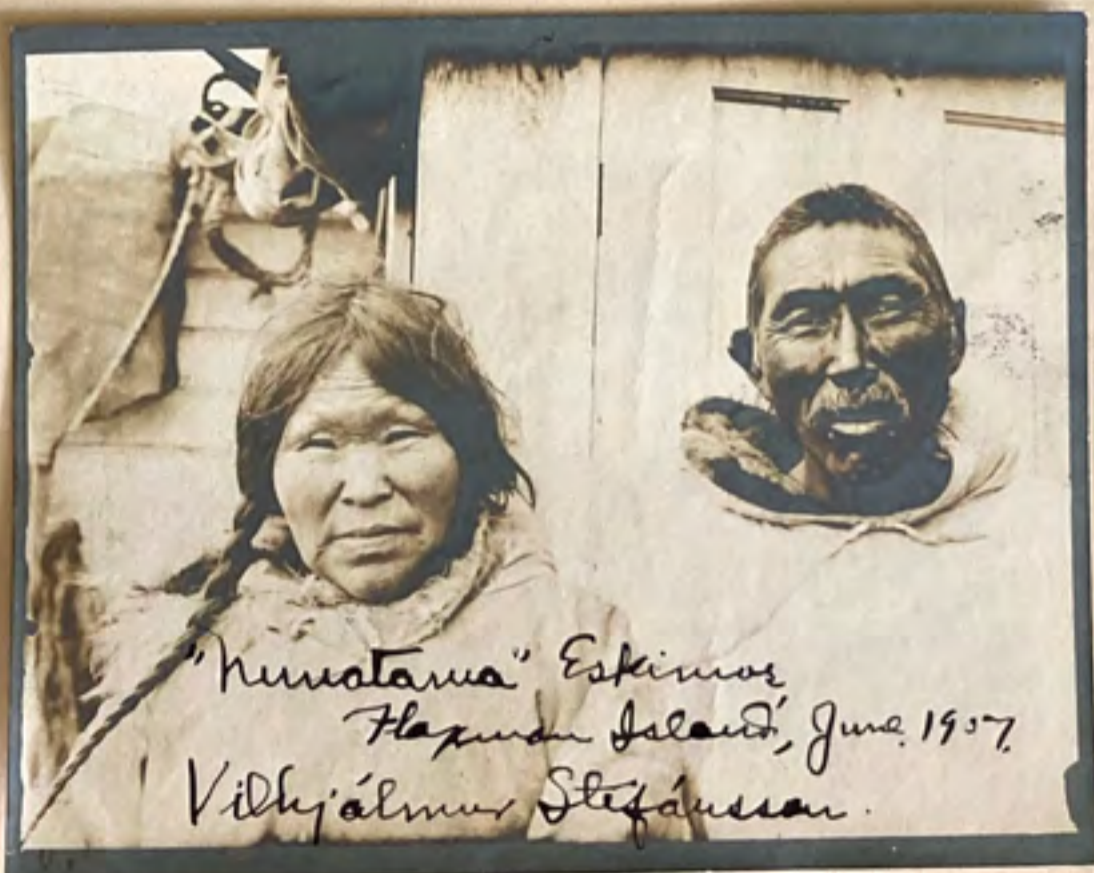 "Nunatama" Eskimos
Flaxman Island, June 1907.
Vilhjálmur Stefánsson.